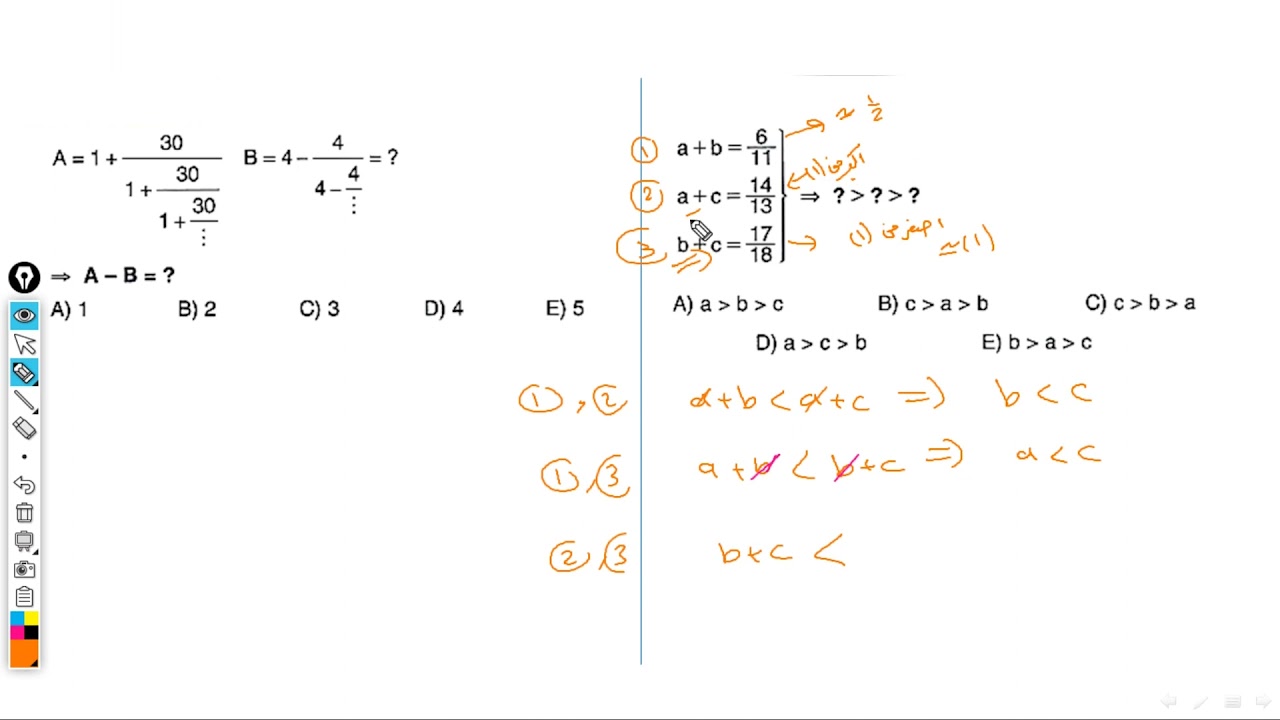 A = 1 + 30/(1 + 30/(1 + 30/⋮)) B = 4 − 4/(4 − 4/⋮) = ?
⇒ A − B = ?
A) 1 B) 2 C) 3 D) 4 E) 5
① a + b = 6/11 → ≈ 1/2
② a + c = 14/13 ← أكبر من (1)
⇒ ? > ? > ?
③ b + c = 17/18 → اصغر من (1) ≈ (1)
⇒
A) a > b > c B) c > a > b C) c > b > a
D) a > c > b E) b > a > c
①, ② a + b < a + c ⇒ b < c
①, ③ a + b < b + c ⇒ a < c
②, ③ b + c <